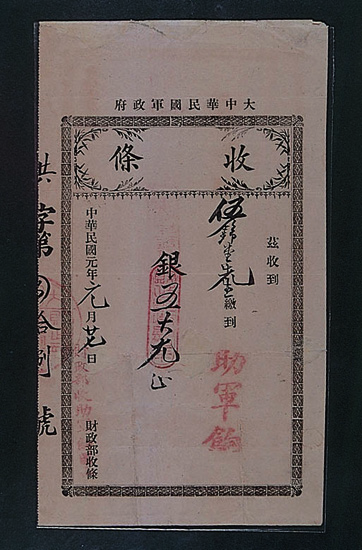 大中華民國軍政府
收條
茲收到
伍 繳到
助軍餉
銀五大元正
中華民國元年元月廿七日
財政部收條
洪字第四拾捌號